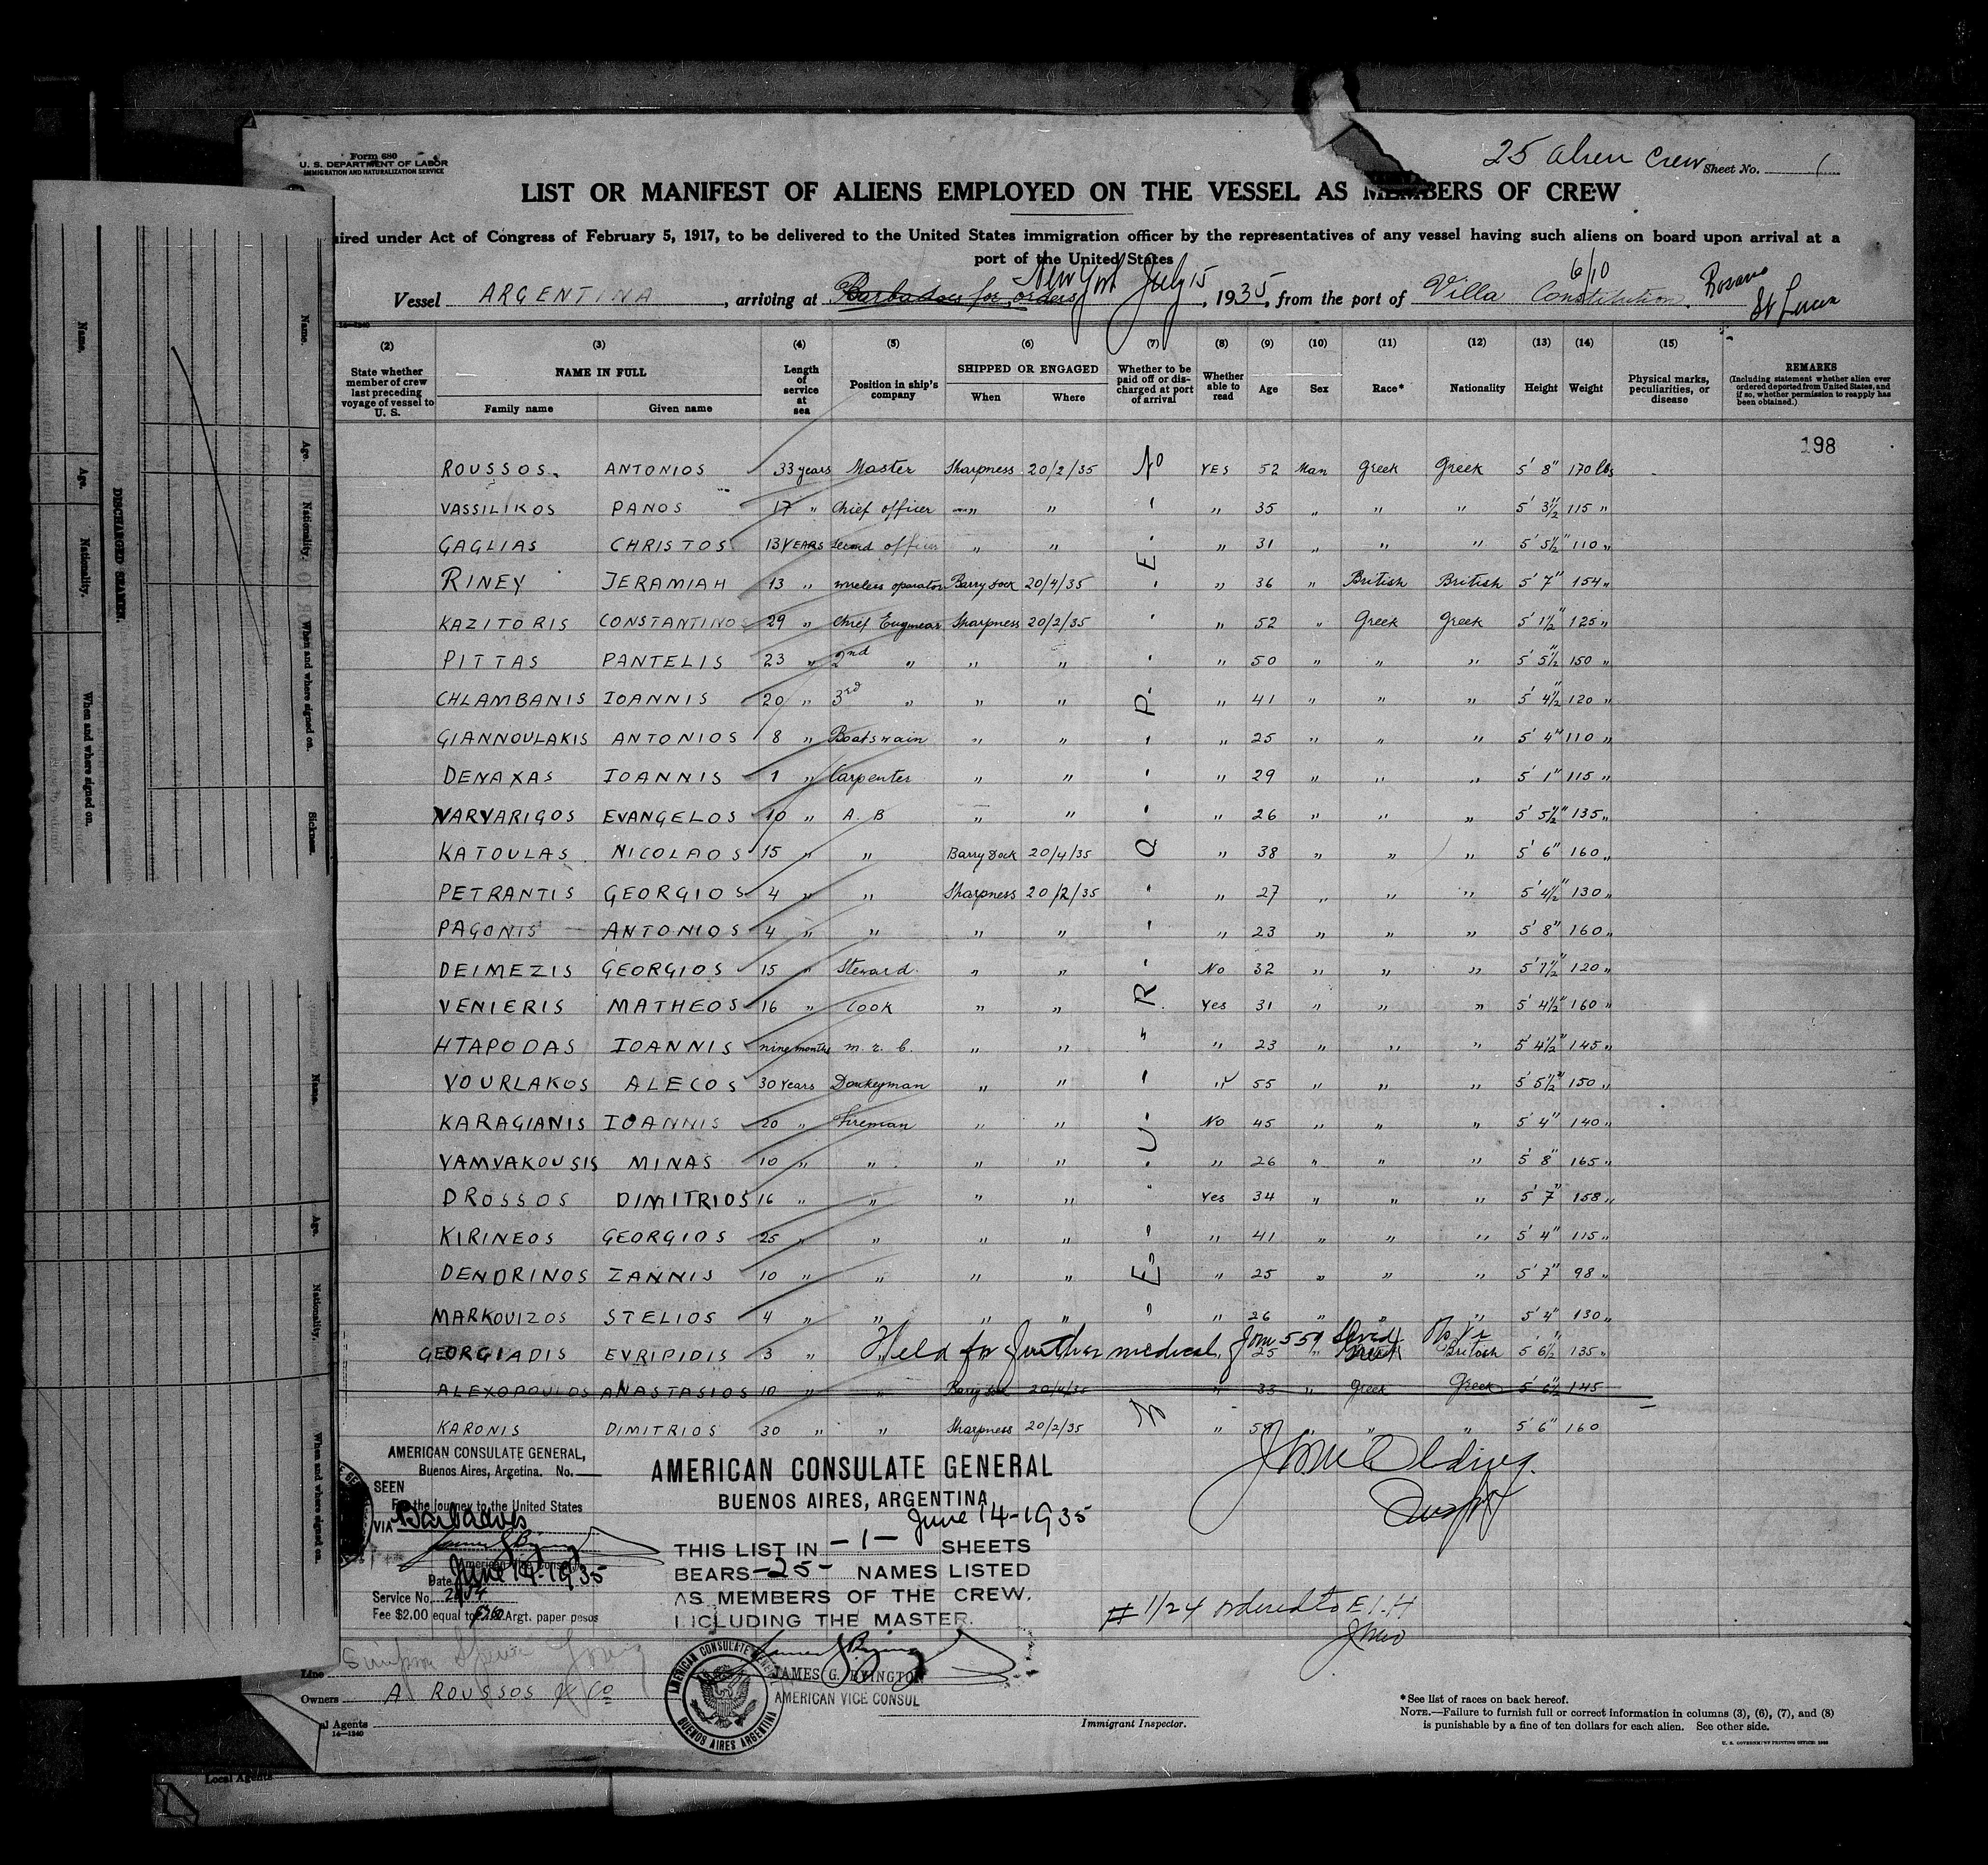 Form 680
U. S. DEPARTMENT OF LABOR
IMMIGRATION AND NATURALIZATION SERVICE
25 alien Crew Sheet No. 1
LIST OR MANIFEST OF ALIENS EMPLOYED ON THE VESSEL AS MEMBERS OF CREW
uired under Act of Congress of February 5, 1917, to be delivered to the United States immigration officer by the representatives of any vessel having such aliens on board upon arrival at a
port of the United States
New York July 15 6/10 Rosario
Vessel ARGENTINA, arriving at Barbados for orders, 1935, from the port of Villa Constitution St Lucia
14—1240
(2) (3) (4) (5) (6) (7) (8) (9) (10) (11) (12) (13) (14) (15)
State whether member of crew last preceding voyage of vessel to U. S. NAME IN FULL Family name Given name Length of service at sea Position in ship's company SHIPPED OR ENGAGED When Where Whether to be paid off or discharged at port of arrival Whether able to read Age Sex Race* Nationality Height Weight Physical marks, peculiarities, or disease REMARKS (Including statement whether alien ever ordered deported from United States, and if so, whether permission to reapply has been obtained.)
198
ROUSSOS ANTONIOS 33 years Master Sharpness 20/2/35 No YES 52 Man Greek Greek 5' 8" 170 lbs
VASSILIKOS PANOS 17 " Chief officer " " " 35 " " " 5' 3½" 115 "
GAGLIAS CHRISTOS 13 YEARS second officer " " " 31 " " " 5' 5½" 110 "
RINEY JERAMIAH 13 " wireless operator Barry Dock 20/4/35 E " 36 " British British 5' 7" 154 "
KAZITORIS CONSTANTINOS 29 " Chief Engineer Sharpness 20/2/35 " 52 " Greek Greek 5' 1½" 125 "
PITTAS PANTELIS 23 " 2nd " " " " 50 " " " 5' 5½" 150 "
CHLAMBANIS IOANNIS 20 " 3rd " " " P " 41 " " " 5' 4½" 120 "
GIANNOULAKIS ANTONIOS 8 " Boatswain " " " 25 " " " 5' 4" 110 "
DENAXAS IOANNIS 1 " Carpenter " " " 29 " " " 5' 1" 115 "
VARVARIGOS EVANGELOS 10 " A. B " " " 26 " " " 5' 5½" 135 "
KATOULAS NICOLAOS 15 " " Barry Dock 20/4/35 Q " 38 " " " 5' 6" 160 "
PETRANTIS GEORGIOS 4 " " Sharpness 20/2/35 " 27 " " " 5' 4½" 130 "
PAGONIS ANTONIOS 4 " " " " " 23 " " " 5' 8" 160 "
DEIMEZIS GEORGIOS 15 " Steward " " No 32 " " " 5' 7½" 120 "
VENIERIS MATHEOS 16 " Cook " " R Yes 31 " " " 5' 4½" 160 "
HTAPODAS IOANNIS nine months m. r. b. " " " 23 " " " 5' 4½" 145 "
VOURLAKOS ALECOS 30 Years Donkeyman " " " 55 " " " 5' 5½" 150 "
KARAGIANIS IOANNIS 20 " Fireman " " U No 45 " " " 5' 4" 140 "
VAMVAKOUSIS MINAS 10 " " " " " 26 " " " 5' 8" 165 "
DROSSOS DIMITRIOS 16 " " " " Yes 34 " " " 5' 7" 158 "
KIRINEOS GEORGIOS 25 " " " " " 41 " " " 5' 4" 115 "
DENDRINOS ZANNIS 10 " " " " E " 25 " " " 5' 7" 98 "
MARKOUIZOS STELIOS 4 " " " " " 26 " " " 5' 4" 130 "
GEORGIADIS EVRIPIDIS 3 " " Held for further medical. Form 559 Served 25 " Greek British 5' 6½" 135 "
ALEXOPOULOS ANASTASIOS 10 " " Barry Dock 20/4/35 " 33 " Greek Greek 5' 6½" 145
KARONIS DIMITRIOS 30 " " Sharpness 20/2/35 " " " 5' 6" 160
AMERICAN CONSULATE GENERAL,
Buenos Aires, Argetina. No.
SEEN
For the Journey to the United States
VIA Barbados
American Vice Consul
Date June 14-1935
Service No.
Fee $2.00 equal to Argt. paper pesos
AMERICAN CONSULATE GENERAL
BUENOS AIRES, ARGENTINA
June 14-1935
THIS LIST IN -1- SHEETS
BEARS -25- NAMES LISTED
AS MEMBERS OF THE CREW,
INCLUDING THE MASTER.
JAMES G. BYINGTON
AMERICAN VICE CONSUL
AMERICAN CONSULATE GENERAL
BUENOS AIRES ARGENTINA
# 1/24 ordered to E.I.H
Line Simpson Spence Young
Owners A. ROUSSOS & Co
al Agents
14—1240
Immigrant Inspector.
*See list of races on back hereof.
NOTE.—Failure to furnish full or correct information in columns (3), (6), (7), and (8)
is punishable by a fine of ten dollars for each alien. See other side.
U. S. GOVERNMENT PRINTING OFFICE
Local Agents
DISCHARGED SEAMEN.
Name. Age. Nationality. When and where signed on.
Name. Age. Nationality. When and where signed on. Sickness.
Name. Age. Nationality. When and where signed on.